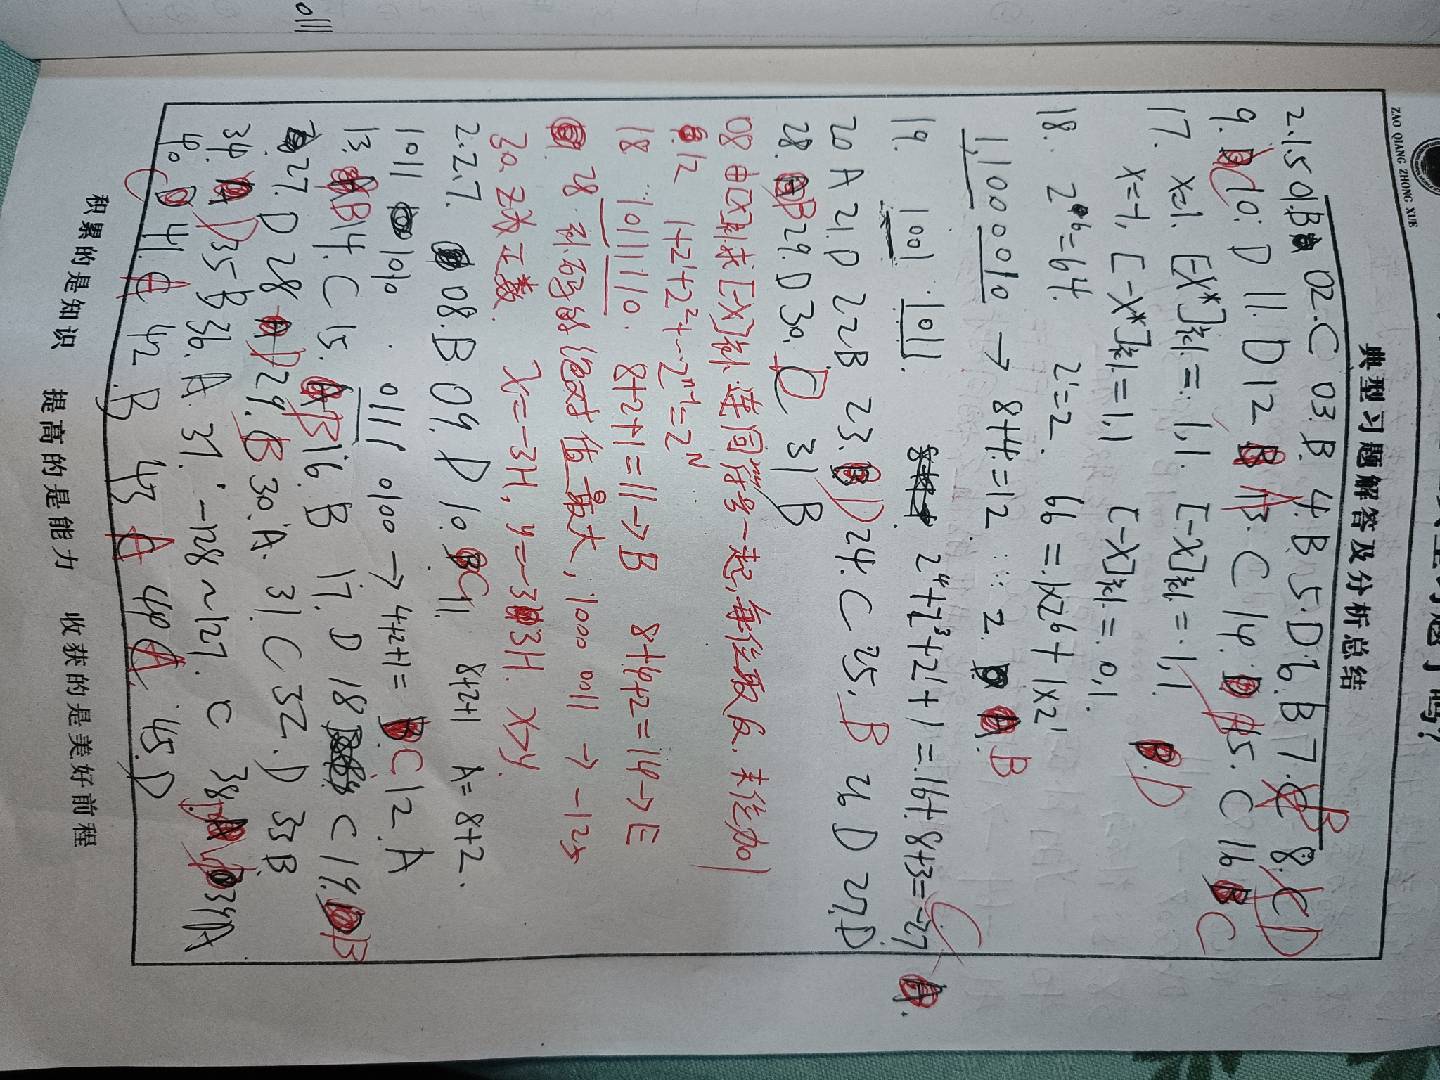 ZAO QIANG ZHONG XUE
典型习题解答及分析总结
2.1.5 01.B 02.C 03.B. 4.B. 5.D. 6.B 7.C B 8.C D
9.B C 10.D 11.D 12 B A 13.C 14.D A 15.C 16 B C
17. x=1. [X*]补=1,1. [-X]补=1,1. B.D
x=-1, [-X*]补=1,1 [-X]补=0,1.
18. 2^6=64. 2^1=2. 66=1×2^6+1×2^1
1,1000010 → 8+4=12 2. A B
19. 1001 1011. 2^4+2^3+2^1+1=16+8+3=-27 A. C
20 A 21.D 22B. 23.B D 24.C 25.B 26 D 27.D
28.A B 29.D 30.C D 31 B
08 由[X]补求[-X]补.连同符号一起,每位取反.末位加1
12 1+2^1+2^2+…2^{n-1}=2^N
18 10111110. 8+2+1=11→B 8+4+2=14→E
28 补码的绝对值最大,1000 0011 → -125
30. Z为正数. X=-3H, y=-33H. X>y.
2.2.7. 08.B 09.D 10.B C 11. 8+2+1 A=8+2.
1011 1010 0111 0100 → 4+2+1= B C 12.A
13.A B 14.C 15.A B 16.B 17.D 18 C 19.D B
27.D 28 A D 29.C B 30.A. 31.C 32.D 33B.
34.A D 35B 36.A. 37. -128~127. C 38.A D 39A
40.D C 41.C A 42.B 43 C A 44 C A. 45.D
0111
积累的是知识 提高的是能力 收获的是美好前程